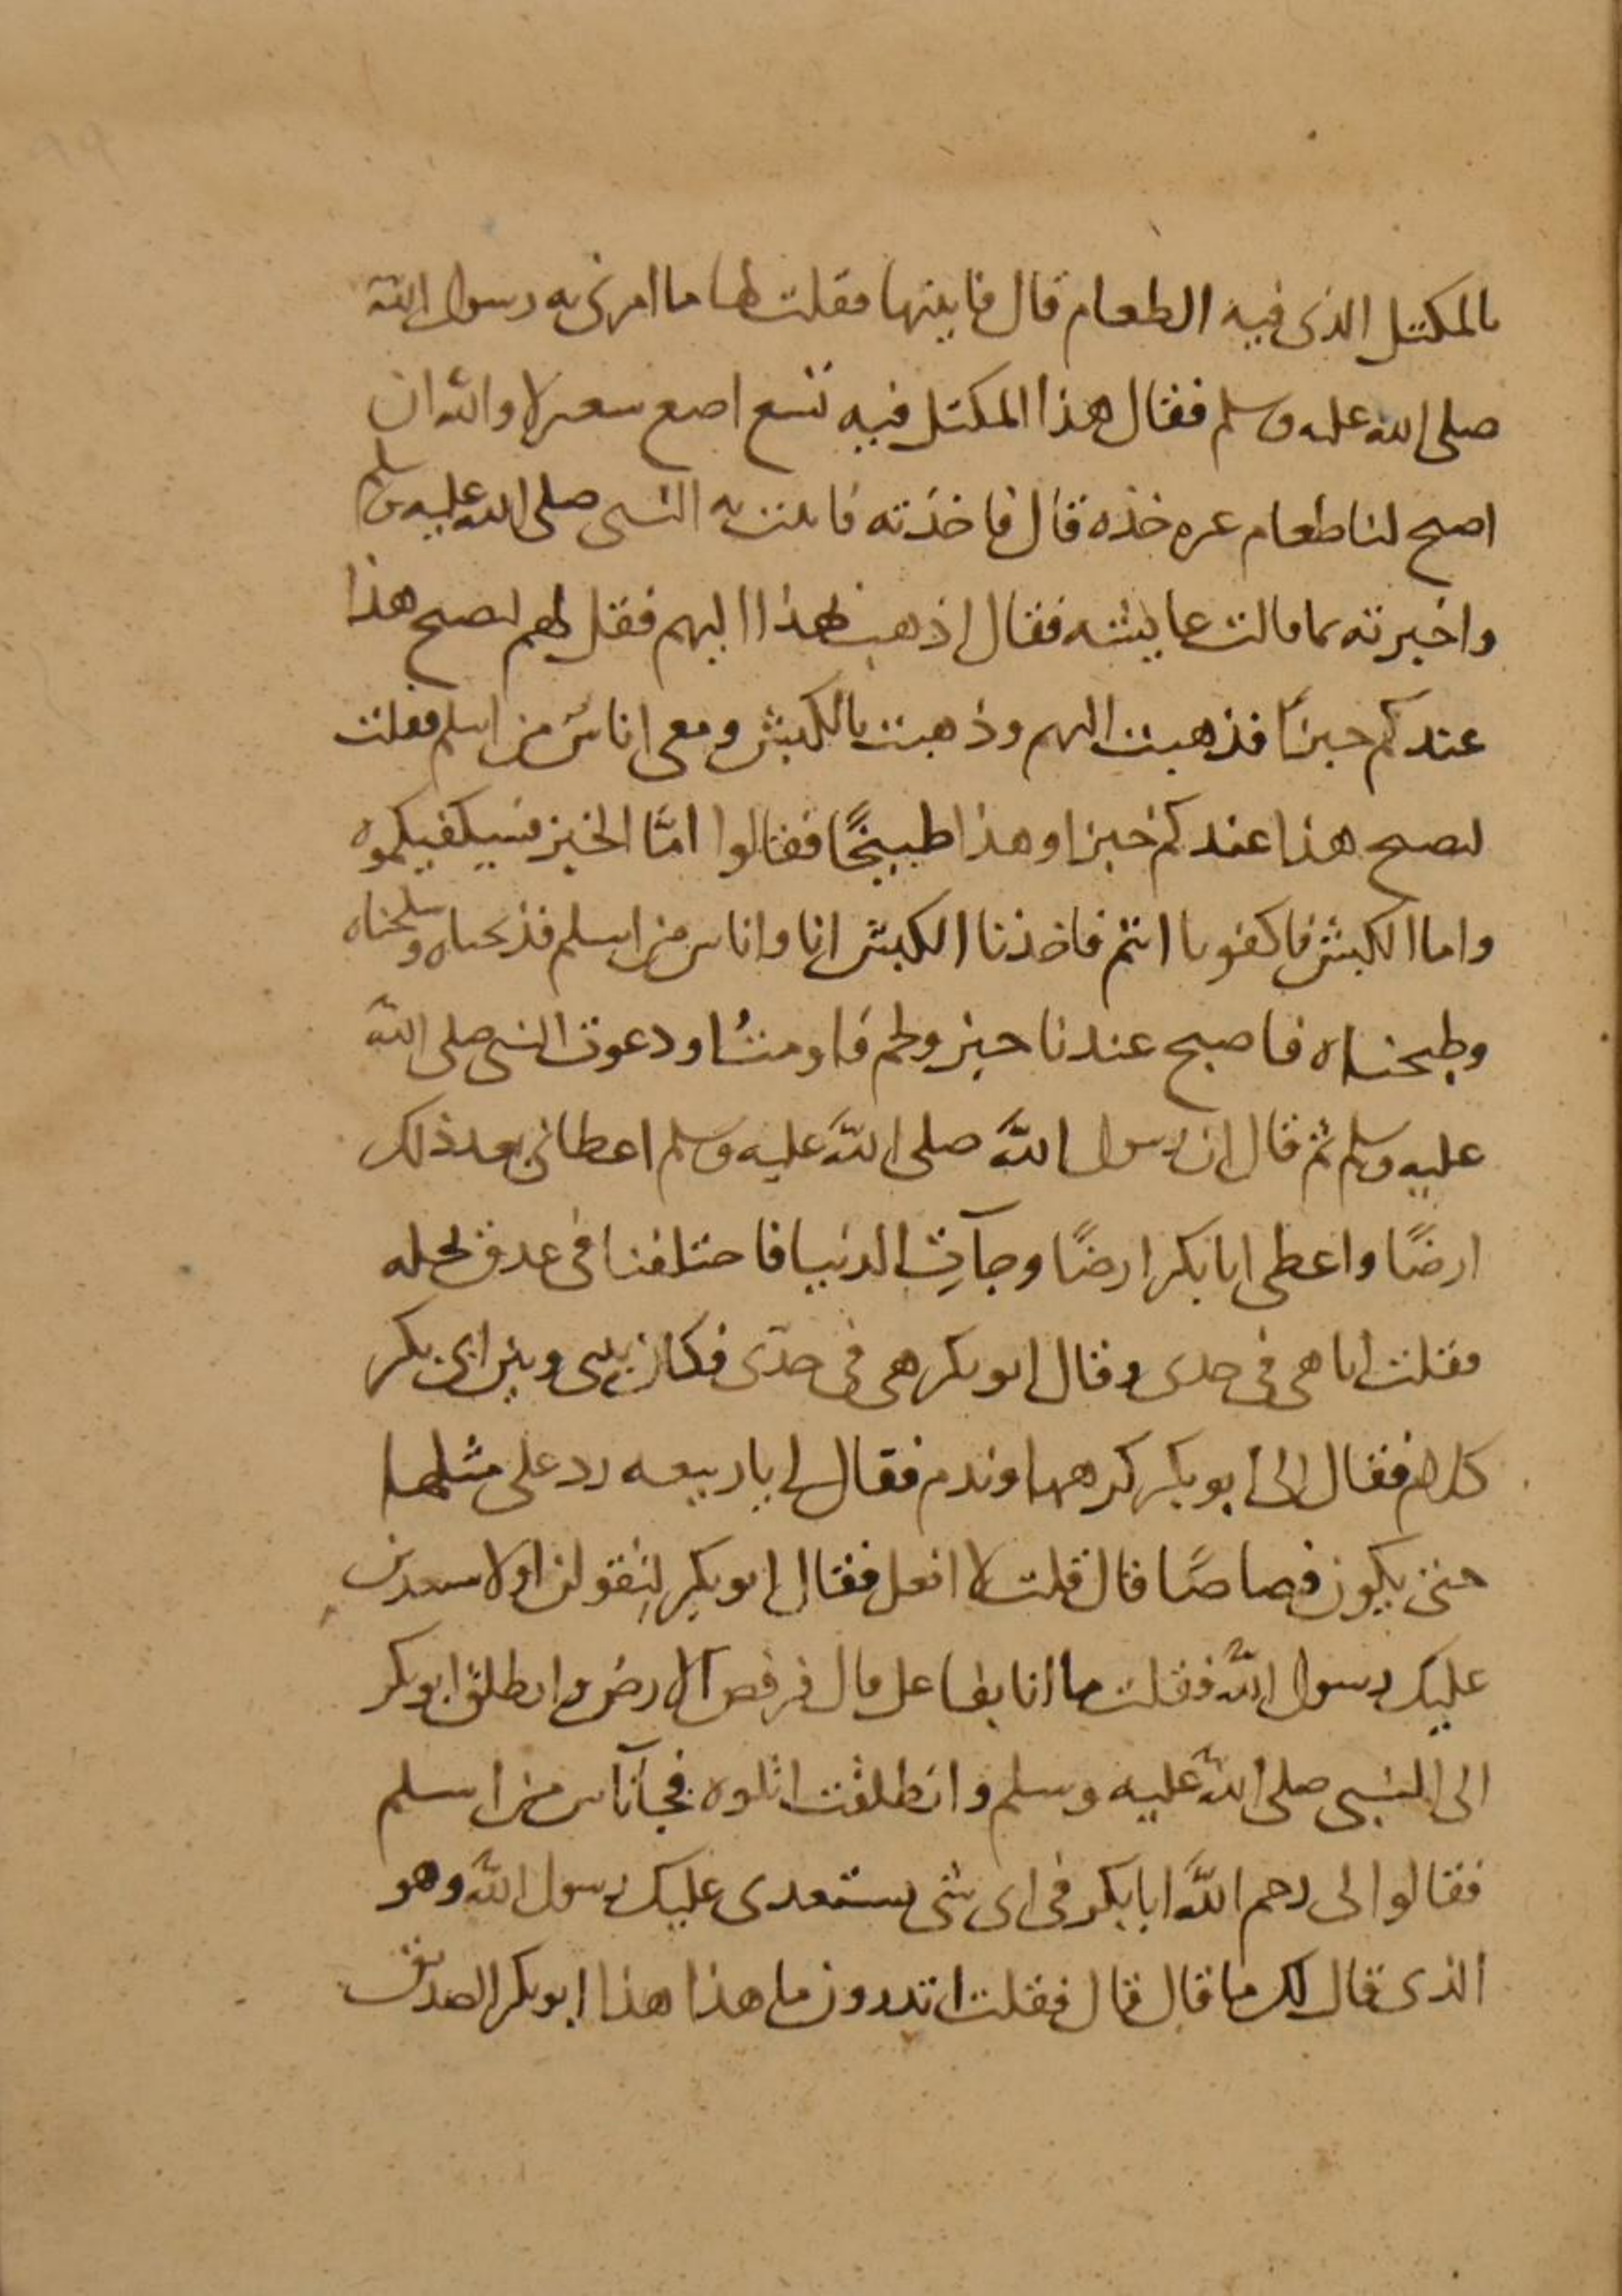 بالمكتل الذى فيه الطعام قال فاتيتها فقلت لها ما امرنى به رسول الله
صلى الله عليه وسلم فقال هذا المكتل فيه تسع اصع شعير لا والله ان
اصبح لنا طعام غيره خذه قال فاخذته فاتيت به النبى صلى الله عليه وسلم
واخبرته بما قالت عايشه فقال اذهب بهذا اليهم فقل لهم ليصبح هذا
عندكم خبزا فذهبت اليهم وذهبت بالكبش ومعى اناس من اسلم فقلت
ليصبح هذا عندكم خبزا وهذا طبيخًا فقالوا امّا الخبز فسيكفيكموه
واما الكبش فاكفونا انتم فاخذنا الكبش انا واناس من اسلم فذبحناه وسلخناه
وطبخناه فاصبح عندنا خبز ولحم فاومتُ ودعوت النبى صلى الله
عليه وسلم ثم قال ان رسول الله صلى الله عليه وسلم اعطانى بعد ذلك
ارضًا واعطى ابا بكر ارضًا وجآت الدنيا فاختلفنا فى عدق نخله
فقلت انا هى فى حدى وقال ابو بكر هى فى حدّى فكان بينى وبين ابى بكر
كلام فقال لى ابو بكر كرهها وندم فقال لى يا ربيعه رد على مثلها
حتى يكون قصاصًا قال قلت لا افعل فقال ابو بكر لتقولن او لاستعدين
عليك رسول الله فقلت ما انا بفاعل قال فرفض الارض وانطلق ابو بكر
الى النبى صلى الله عليه وسلم وانطلقت اتلوه فجآ ناس من اسلم
فقالوا لى رحم الله ابا بكر فى اى شى يستعدى عليك رسول الله وهو
الذى قال لك ما قال قال فقلت اتدرون ما هذا هذا ابو بكر الصديق